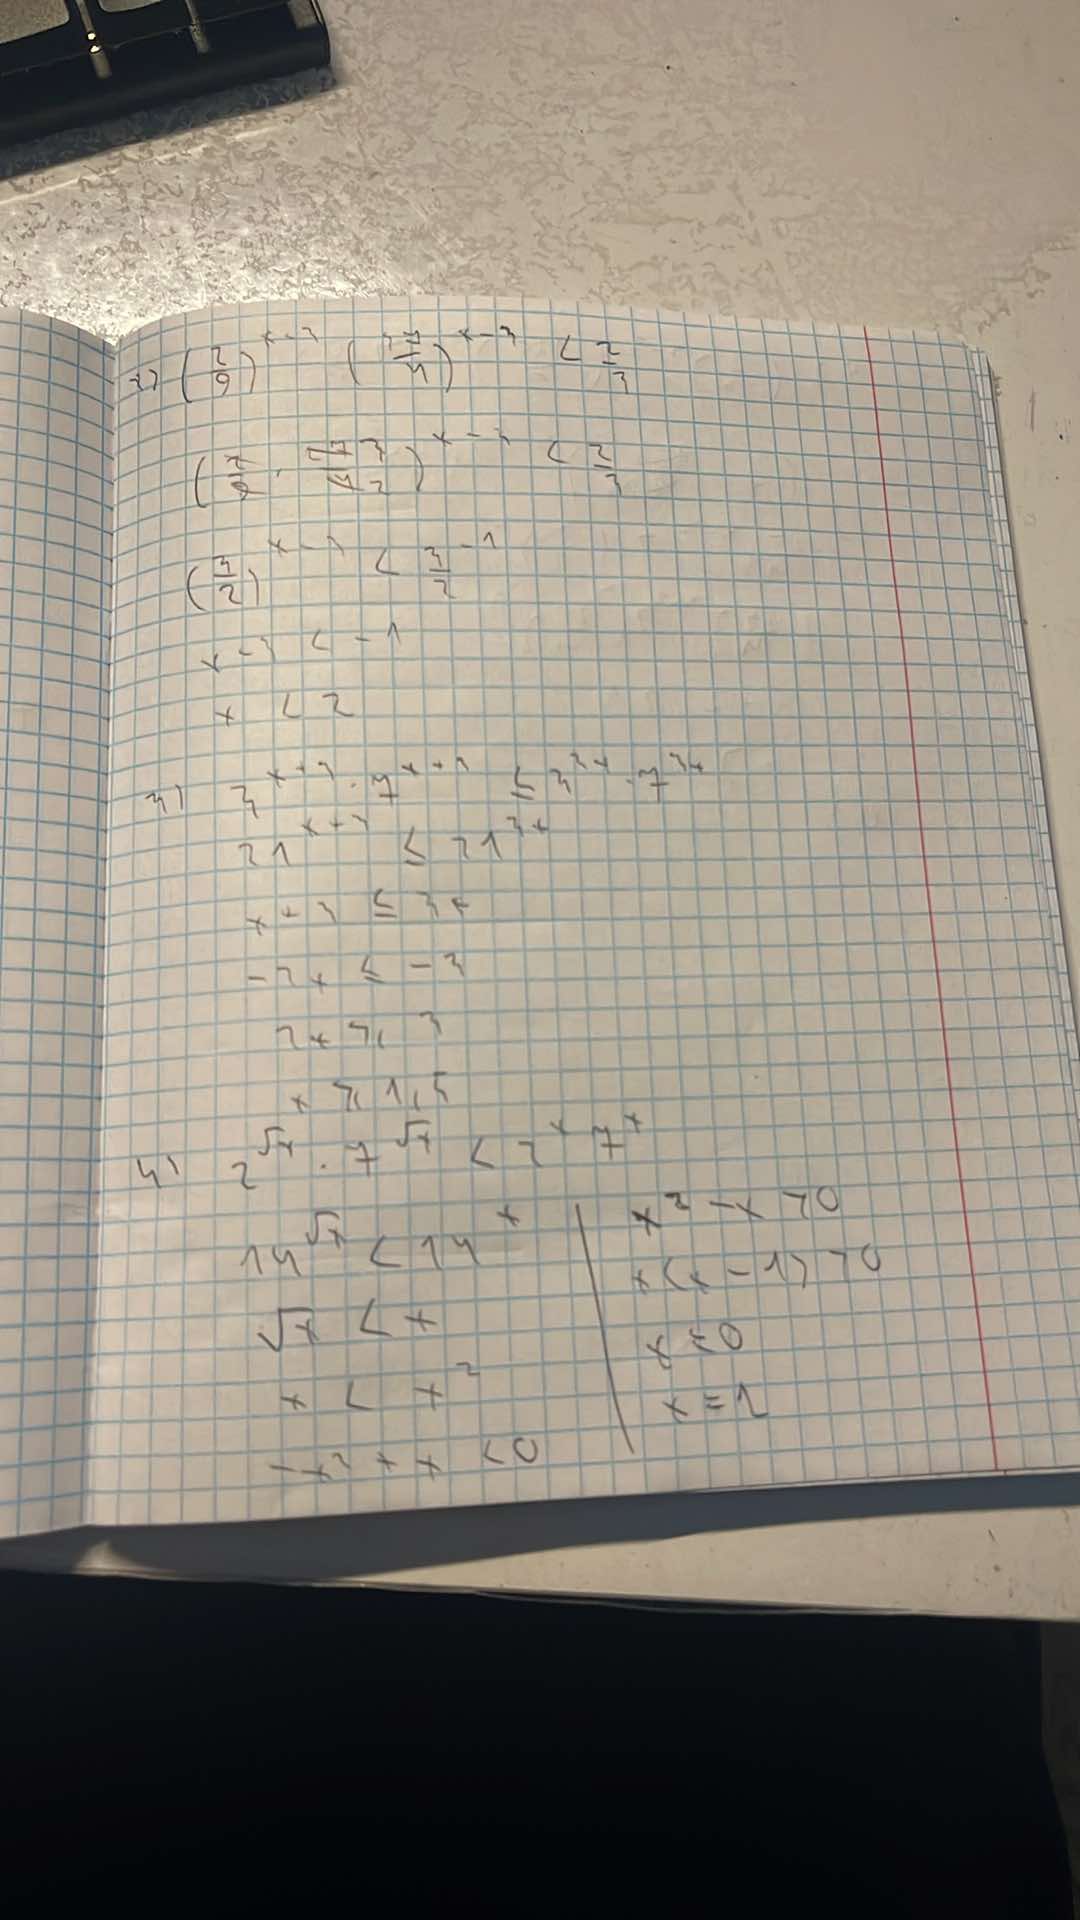 2) (2/9)^(x-3) (27/4)^(x-3) < 2/3
(2/9 · 27 3/4 2)^(x-3) < 2/3
(3/2)^(x-3) < 3/2^(-1)
x-3 < -1
x < 2
3) 3^(x+3) · 7^(x+3) ≤ 3^(3x) · 7^(3x)
21^(x+3) ≤ 21^(3x)
x+3 ≤ 3x
-2x ≤ -3
2x ≥ 3
x ≥ 1,5
4) 2^√x · 7^√x < 2^x 7^x
14^√x < 14^x
√x < x
x < x²
-x² + x < 0
x² - x > 0
x(x-1) > 0
x = 0
x = 1